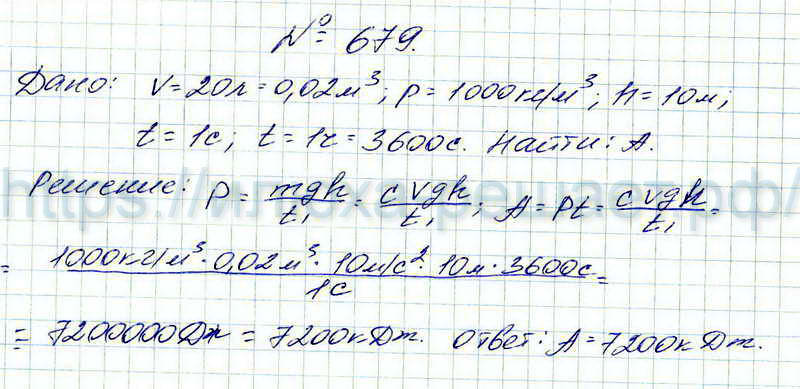 № 679.
Дано: V = 20л = 0,02м³; ρ = 1000кг/м³; h = 10м;
t = 1с; t = 1ч = 3600с. Найти: A.
Решение: P = mgh/t₁ = cVgh/t₁; A = Pt = cVgh/t₁ =
= 1000кг/м³ · 0,02м³ · 10м/с² · 10м · 3600с / 1с =
= 7200000Дж = 7200кДж. Ответ: A = 7200кДж.